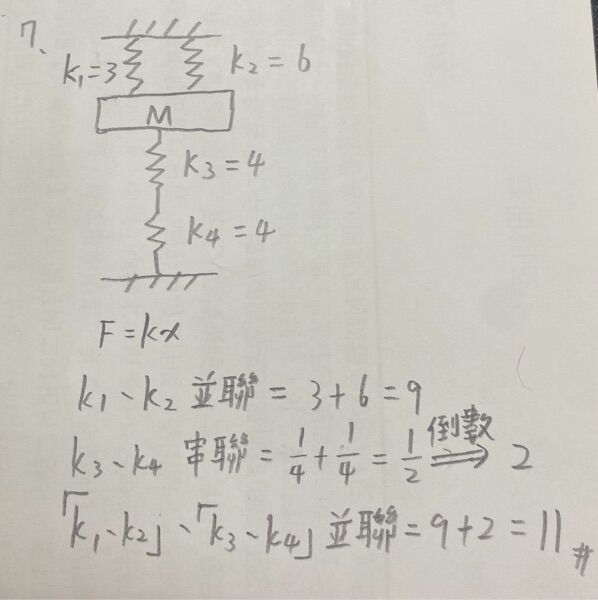 7、
k₁=3 k₂ = 6
M
k₃ = 4
k₄ = 4
F = kx
k₁、k₂ 並聯 = 3+6 = 9
k₃、k₄ 串聯 = 1/4 + 1/4 = 1/2 倒數⟹ 2
「k₁、k₂」、「k₃、k₄」並聯 = 9+2 = 11 #